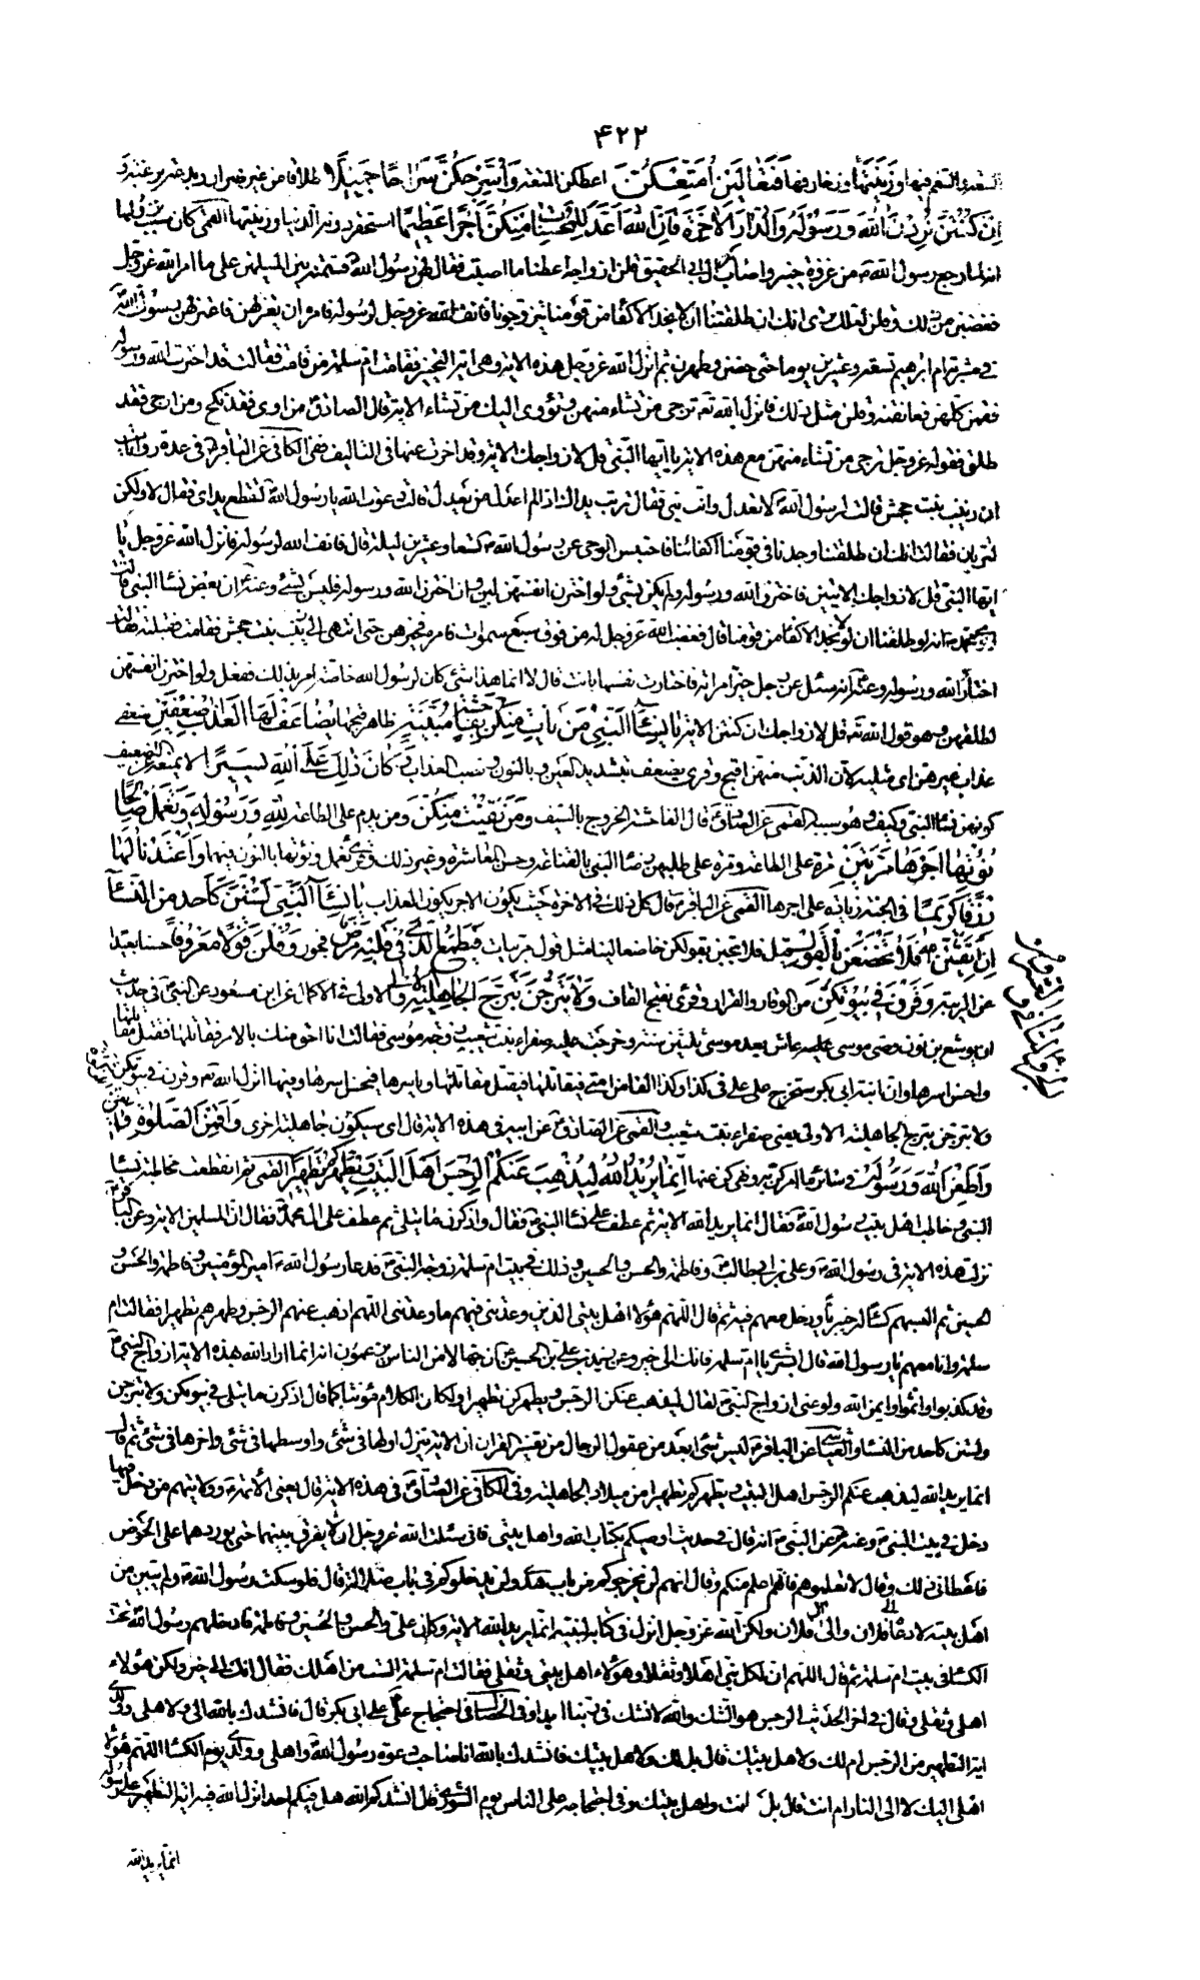 ۴۲۲
السعة والتنعم فيها وَزِينَتَهَا وزخارفها فَتَعَالَيْنَ أُمَتِّعْكُنَّ اعطكن المتعة وَأُسَرِّحْكُنَّ سَرَاحًا جَمِيلًا طلاقا من غير ضرار وبدعة
إِنْ كُنْتُنَّ تُرِدْنَ اللهَ وَرَسُولَهُ وَالدَّارَ الْآخِرَةَ فَإِنَّ اللهَ أَعَدَّ لِلْمُحْسِنَاتِ مِنْكُنَّ أَجْرًا عَظِيمًا استحقر دونه الدنيا وزينتها القمي كان سبب نزولها
انه لما رجع رسول الله ص من غزوة خيبر واصاب كنز ال ابي الحقيق قلن ازواجه اعطنا ما اصبت فقال لهن رسول الله ص قسمته بين المسلمين على ما امر الله عز وجل
فغضبن من ذلك وقلن لعلك ترى انك ان طلقتنا ان لا نجد الاكفاء من قومنا يتزوجونا فانف الله عز وجل لرسوله فامره ان يعتزلهن فاعتزلهن رسول الله
في مشربة ام ابرهيم تسعة وعشرين يوما حتى حضن وطهرن ثم انزل الله عز وجل هذه الاية وهي اية التخيير فقامت ام سلمة اول من قامت فقالت قد اخترت الله ورسوله
فقمن كلهن فعانقنه وقلن مثل ذلك فانزل الله تعه ترجي من تشاء منهن وتؤوي اليك من تشاء الاية قال الصادق ع من اوى فقد نكح ومن ارجى فقد
طلق فقوله عز وجل ترجي من تشاء منهن مع هذه الاية يا ايها النبي قل لازواجك الاية وقد اخرت عنها في التاليف وفي الكافي عن الباقر ع في عدة روايات
ان زينب بنت جحش قالت لرسول الله ص لا تعدل وانت نبي فقال تربت يداك اذا لم اعدل من يعدل قالت دعوت الله يا رسول الله ليقطع يداي فقال لا ولكن
لتتربان فقالت انك ان طلقتنا وجدنا في قومنا اكفائنا فاحتبس الوحي عن رسول الله ص تسعا وعشرين ليلة قال فانف الله لرسوله فانزل الله عز وجل يا
ايها النبي قل لازواجك الايتين فاخترن الله ورسوله ولم يكن شيئ ولو اخترن انفسهن لبن وان اخترن الله ورسوله فليس بشيئ وعنه ع ان بعض نساء النبي قالت
ايرى محمد ص انه لو طلقنا ان لا نجد الاكفاء من قومنا قال فغضب الله عز وجل له من فوق سبع سموات فامره فخيرهن حتى انتهى الى زينب بنت جحش فقامت فقبلته وقالت
اختار الله ورسوله وعنه ع انه سئل عن رجل خير امراته فاختارت نفسها بانت قال لا انما هذا شيئ كان لرسول الله خاصة امر بذلك ففعل ولو اخترن انفسهن
لطلقهن وهو قول الله تعه قل لازواجك ان كنتن الاية يَا نِسَاءَ النَّبِيِّ مَنْ يَأْتِ مِنْكُنَّ بِفَاحِشَةٍ مُبَيِّنَةٍ ظاهر قبحها يُضَاعَفْ لَهَا الْعَذَابُ ضِعْفَيْنِ ضعفي
عذاب غيرهن اي مثليه لان الذنب منهن اقبح وقرئ يضعف بتشديد العين وبالنون ونصب العذاب وَكَانَ ذَلِكَ عَلَى اللهِ يَسِيرًا لا يمنعه عن التضعيف
كونهن نساء النبي وكيف وهو سببه القمي عن الصادق ع قال الفاحشة الخروج بالسيف وَمَنْ يَقْنُتْ مِنْكُنَّ ومن يدم على الطاعة لِلهِ وَرَسُولِهِ وَتَعْمَلْ صَالِحًا
نُؤْتِهَا أَجْرَهَا مَرَّتَيْنِ مرة على الطاعة ومرة على طلبهن رضاء النبي بالقناعة وحسن المعاشرة وغير ذلك وقرئ يعمل ويؤتها بالنون فيهما وَأَعْتَدْنَا لَهَا
رِزْقًا كَرِيمًا في الجنة زيادة على اجرها القمي عن الباقر ع قال كل ذلك في الاخرة حيث يكون الاجر يكون العذاب يَا نِسَاءَ النَّبِيِّ لَسْتُنَّ كَأَحَدٍ مِنَ النِّسَاءِ
إِنِ اتَّقَيْتُنَّ فَلَا تَخْضَعْنَ بِالْقَوْلِ فلا تجئن بقولكن خاضعا لينا مثل قول المريبات فَيَطْمَعَ الَّذِي فِي قَلْبِهِ مَرَضٌ فجور وَقُلْنَ قَوْلًا مَعْرُوفًا حسنا بعيدا
عن الريبة وَقَرْنَ فِي بُيُوتِكُنَّ من الوقار والقرار وقرئ بفتح القاف وَلَا تَبَرَّجْنَ تَبَرُّجَ الْجَاهِلِيَّةِ الْأُولَى في الاكمال عن ابن مسعود عن النبي ص في حديث
ان يوشع بن نون وصي موسى ع عاش بعد موسى ثلثين سنة وخرجت عليه صفراء بنت شعيب زوجة موسى فقالت انا احق منك بالامر فقاتلها فقتل مقاتليها
واحسن اسرها وان ابنة ابي بكر ستخرج على علي في كذا وكذا الفا من امتي فيقاتلها فيقتل مقاتليها وياسرها فيحسن اسرها وفيها انزل الله تعه وقرن في بيوتكن
ولا تبرجن تبرج الجاهلية الاولى يعني صفراء بنت شعيب والقمي عن الصادق ع عن ابيه في هذه الاية قال اي سيكون جاهلية اخرى وَأَقِمْنَ الصَّلَوٰةَ
وَأَطِعْنَ اللهَ وَرَسُولَهُ في سائر ما امركن به ونهى كن عنها إِنَّمَا يُرِيدُ اللهُ لِيُذْهِبَ عَنْكُمُ الرِّجْسَ أَهْلَ الْبَيْتِ وَيُطَهِّرَكُمْ تَطْهِيرًا القمي ثم انقطعت مخاطبة نساء
النبي وخاطب اهل بيت رسول الله ص فقال انما يريد الله الاية ثم عطف على نساء النبي ص فقال واذكرن ما يتلى ثم عطف على ال محمد ص فقال ان المسلمين الاية وعن الباقر ع
نزلت هذه الاية في رسول الله ص وعلي بن ابي طالب ع وفاطمة والحسن والحسين ع وذلك في بيت ام سلمة زوجة النبي ص فدعا رسول الله ص امير المؤمنين وفاطمة والحسن و
الحسين ثم البسهم كساء له خيبريا ودخل معهم فيه ثم قال اللهم هؤلاء اهل بيتي الذين وعدتني فيهم ما وعدتني اللهم اذهب عنهم الرجس وطهرهم تطهيرا فقالت ام
سلمة وانا معهم يا رسول الله قال ابشري يا ام سلمة فانك الى خير وعن زيد بن علي بن الحسين ع ان جهالا من الناس يزعمون انه انما اراد الله بهذه الاية ازواج النبي ص
وقد كذبوا واثموا وايم الله ولو عنى ازواج النبي ص لقال ليذهب عنكن الرجس ويطهركن تطهيرا ولكان الكلام مؤنثا كما قال اذكرن ما يتلى في بيوتكن ولا تبرجن
ولستن كاحد من النساء والعياشي عن الباقر ع ليس شيئ ابعد من عقول الرجال من تفسير القران ان الاية تنزل اولها في شيئ واوسطها في شيئ واخرها في شيئ ثم قال
انما يريد الله ليذهب عنكم الرجس اهل البيت ويطهركم تطهيرا من ميلاد الجاهلية وفي الكافي عن الصادق ع في هذه الاية قال يعني الائمة ع وولايتهم من دخل فيها
دخل في بيت النبي ص وعنه ع عن النبي ص انه قال في حديث اوصيكم بكتاب الله واهل بيتي فاني سئلت الله عز وجل ان لا يفرق بينهما حتى يوردهما على الحوض
فاعطاني ذلك وقال لا تعلموهم فانهم اعلم منكم وقال انهم لن يخرجوكم من باب هدى ولن يدخلوكم في باب ضلالة قال فلو سكت رسول الله ص ولم يبين من
اهل بيته لادعاها ال فلان وال فلان ولكن الله عز وجل انزل في كتابه لنبيه انما يريد الله الاية وكان علي والحسن والحسين وفاطمة فادخلهم رسول الله تحت
الكساء في بيت ام سلمة ثم قال اللهم ان لكل نبي اهلا وثقلا وهؤلاء اهل بيتي وثقلي فقالت ام سلمة الست من اهلك فقال انك الى خير ولكن هؤلاء
اهلي وثقلي وقال في اخر الحديث الرجس هو الشك والله لا نشك في ربنا ابدا وفي الخصال في احتجاج علي ع على ابي بكر قال فانشدك بالله الي ولاهلي وولدي
اية التطهير من الرجس ام لك ولاهل بيتك قال بل لك ولاهل بيتك قال فانشدك بالله انا صاحب دعوة رسول الله ص واهلي وولدي يوم الكساء اللهم هؤلاء
اهلي اليك لا الى النار ام انت قال بل انت واهل بيتك وفي احتجاجه على الناس يوم الشورى قال انشدكم الله هل فيكم احد انزل الله فيه اية التطهير على رسوله
انما يريد الله